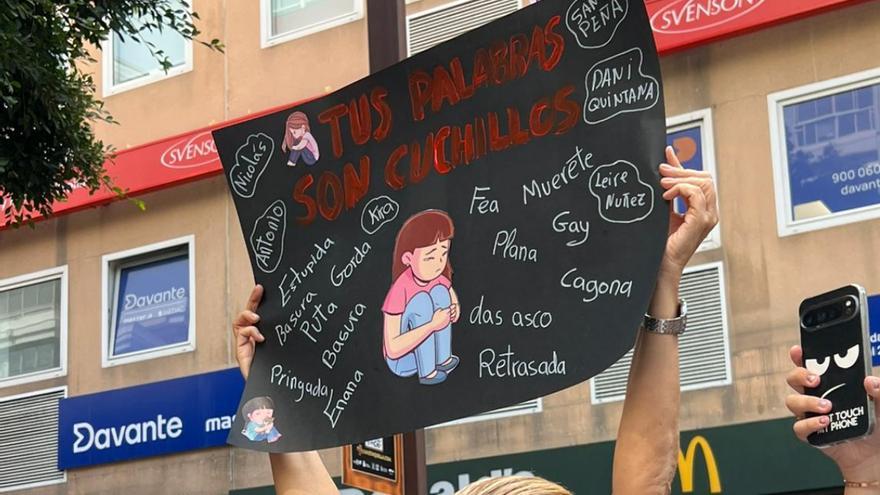 SVENSON
SANDRA
PEÑA
TUS PALABRAS
SON CUCHILLOS
DANI
QUINTANA
SVENSON
Nicolás
Antonio
Kira
LEIRE
NUÑEZ
Fea
Muerete
Gay
Plana
Cagona
das asco
Retrasada
Estupida
Gorda
Basura
Puta
Basura
Pringada
Enana
900 060
davante.
Davante
Davante
mas
DON'T TOUCH
MY PHONE